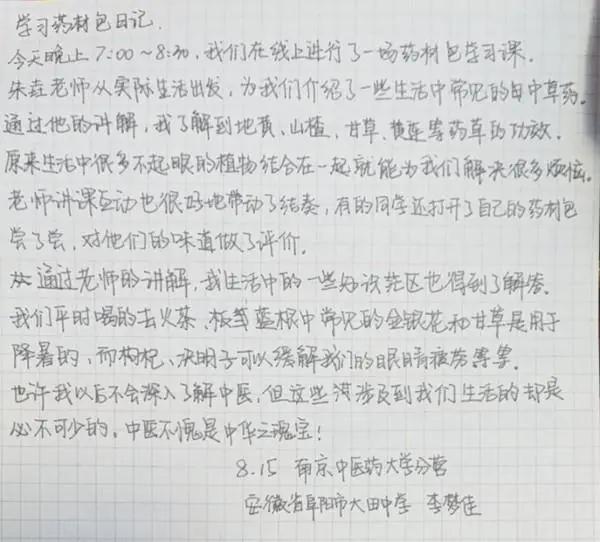 学习药材包日记.
今天晚上7:00~8:30,我们在线上进行了一场药材包学习课.
朱垚老师从实际生活出发,为我们介绍了一些生活中常见的中草药.
通过他的讲解,我了解到地黄、山楂、甘草、黄连等药草的功效.
原来生活中很多不起眼的植物结合在一起就能为我们解决很多烦恼.
老师讲课互动也很好地带动了结奏,有的同学还打开了自己的药材包
尝了尝,对他们的味道做了评价.
通过老师的讲解,我生活中的一些知识死区也得到了解答.
我们平时喝的去火茶、板蓝根中常见的金银花和甘草是用于
降暑的,而枸杞、决明子可以缓解我们的眼睛疲劳等等.
也许我以后不会深入了解中医,但这些涉及到我们生活的却是
必不可少的,中医不愧是中华之瑰宝!
8.15 南京中医药大学分营
安徽省阜阳市大田中学 李梦佳